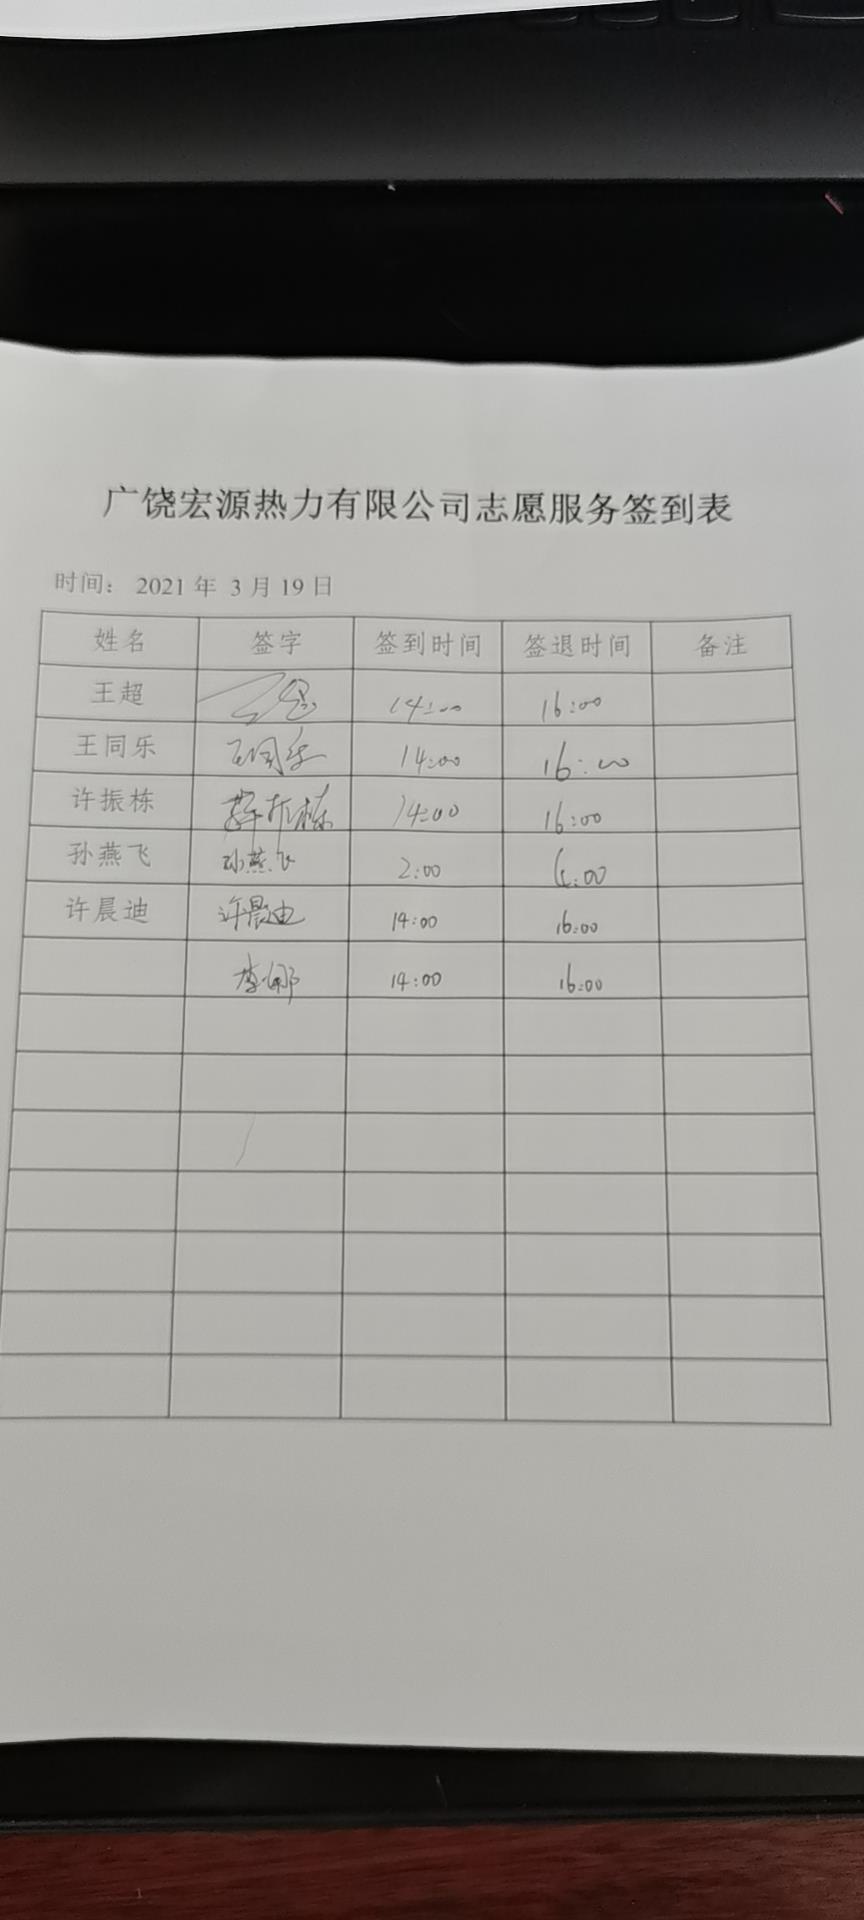 广饶宏源热力有限公司志愿服务签到表
时间: 2021 年 3 月 19 日
姓名 签字 签到时间 签退时间 备注
王超 王超 14:00 16:00
王同乐 王同乐 14:00 16:00
许振栋 许振栋 14:00 16:00
孙燕飞 孙燕飞 2:00 4:00
许晨迪 许晨迪 14:00 16:00
李娜 14:00 16:00